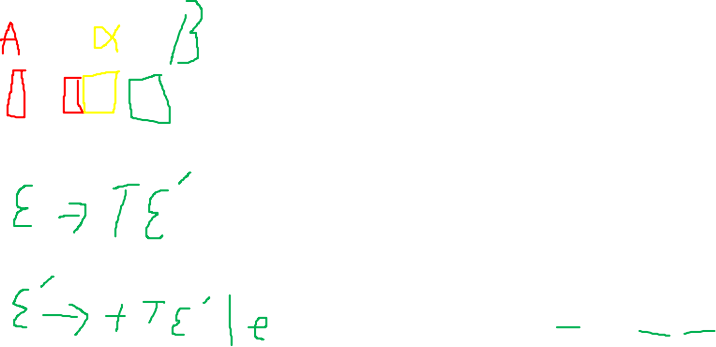 A α β
E → T E′
E′ → + T E′ | e